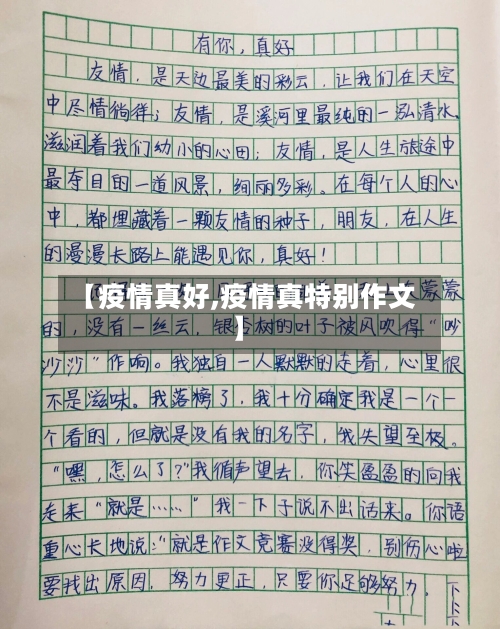 有你，真好
友情，是天边最美的彩云，让我们在天空
中尽情徜徉；友情，是溪河里最纯的一泓清水，
滋润着我们幼小的心田；友情，是人生旅途中
最夺目的一道风景，绚丽多彩。在每个人的心
中，都埋藏着一颗友情的种子，朋友，在人生
的漫漫长路上能遇见你，真好！
蒙蒙
【疫情真好,疫情真特别作文
】
的，没有一丝云，银杏树的叶子被风吹得“吵
沙沙”作响。我独自一人默默的走着，心里很
不是滋味。我落榜了，我十分确定我是一个一
个看的，但就是没有我的名字，我失望至极。
“嘿，怎么了？”我循声望去，你笑盈盈的向我
走来“就是……”我一下子说不出话来。你语
重心长地说：“就是作文竞赛没得奖，别伤心啦
要找出原因，努力更正，只要你足够努力，